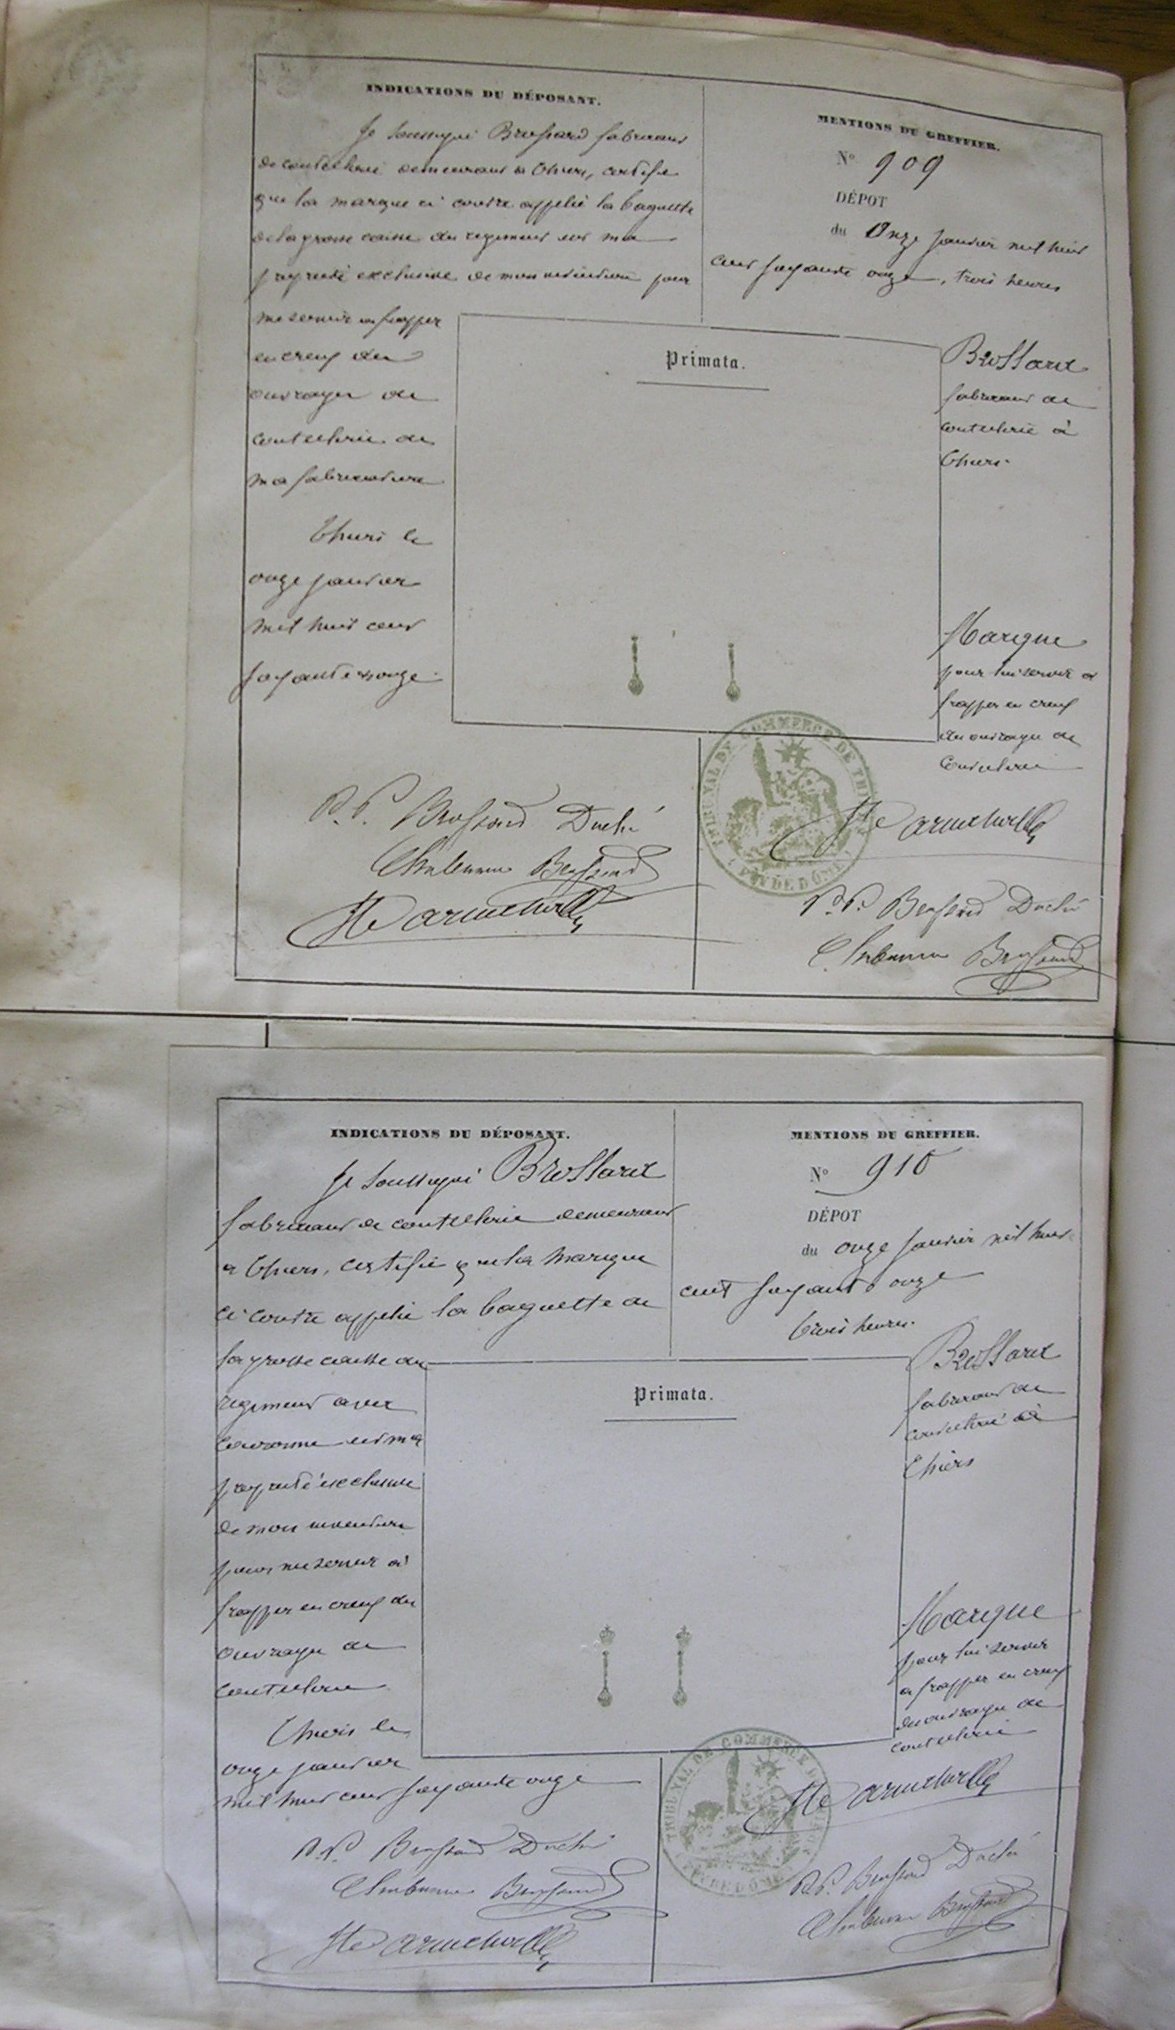 INDICATIONS DU DÉPOSANT.
Je soussigné Brossard fabricant
de coutellerie demeurant à Thiers, certifie
que la marque ci contre appelée la baguette
de la grosse caisse du régiment est ma
propriété exclusive de mon invention pour
me servir à frapper
en creux des
ouvrages de
coutellerie de
ma fabrication
Thiers le
onze janvier
mil huit cent
soixante onze.
P. P. Brossard Duché
Brossard
MENTIONS DU GREFFIER.
N° 909
DÉPOT
du Onze janvier mil huit
cent soixante onze, trois heures
Primata.
Brossard
fabricant de
coutellerie à
Thiers.
Marque
pour lui servir à
frapper en creux
des ouvrages de
coutellerie
TRIBUNAL DE COMMERCE DE THIERS
(PUY DE DÔME)
P. P. Brossard Duché
Brossard
INDICATIONS DU DÉPOSANT.
Je soussigné Brossard
fabricant de coutellerie demeurant
à Thiers, certifie que la marque
ci contre appelée la baguette de
la grosse caisse du
régiment avec
couronne est ma
propriété exclusive
de mon invention
pour me servir à
frapper en creux des
ouvrages de
coutellerie
Thiers le
onze janvier
mil huit cent soixante onze
P. P. Brossard Duché
Brossard
MENTIONS DU GREFFIER.
N° 910
DÉPOT
du onze janvier mil huit
cent soixante onze
trois heures.
Primata.
Brossard
fabricant de
coutellerie à
Thiers
Marque
pour lui servir
à frapper en creux
des ouvrages de
coutellerie
TRIBUNAL DE COMMERCE DE THIERS
(PUY DE DÔME)
P. P. Brossard Duché
Brossard